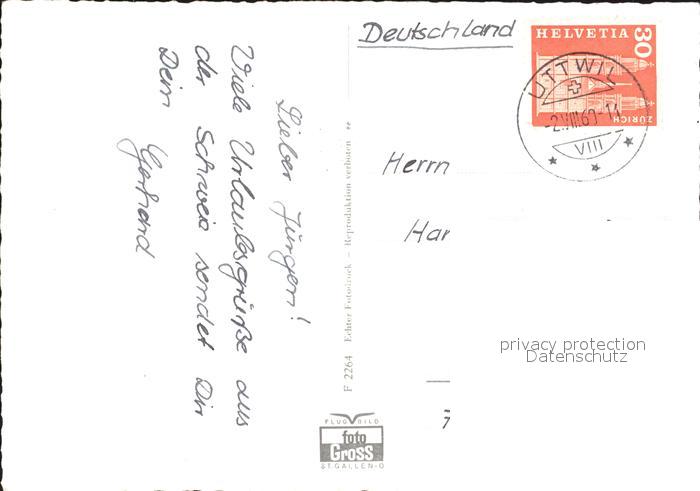 Lieber Jürgen!
Viele Urlaubsgrüße aus
der Schweiz sendet Dir
Dein
Gerhard
F 2264 Echter Fotodruck - Reproduktion verboten
FLUG BILD
foto
Gross
ST. GALLEN-O
Deutschland
HELVETIA
30
ZÜRICH
UTTWIL
-2.VIII.60-14
VIII
Herrn
Har
7
privacy protection
Datenschutz